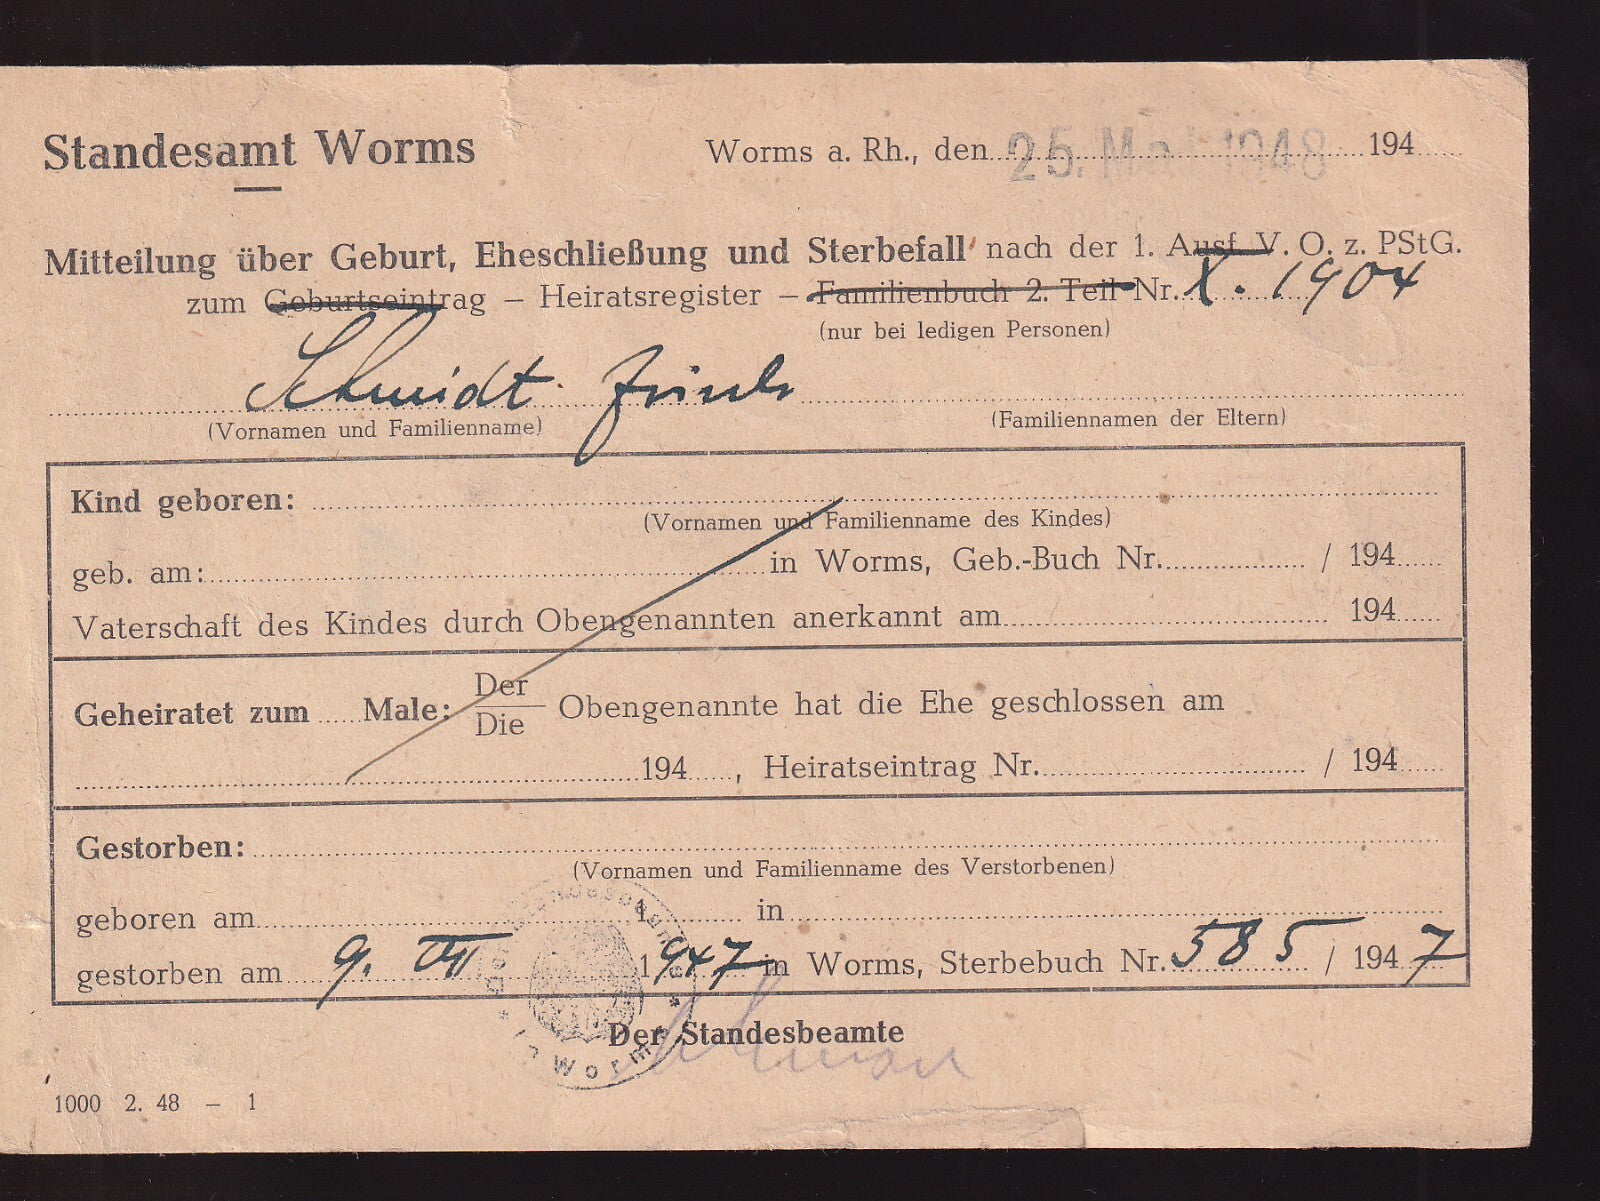 Standesamt Worms
Worms a. Rh., den 25. Mai 1948 194
Mitteilung über Geburt, Eheschließung und Sterbefall nach der 1. Ausf. V. O. z. PStG.
zum Geburtseintrag – Heiratsregister – Familienbuch 2. Teil Nr. X. 1904
(nur bei ledigen Personen)
Schmidt
(Vornamen und Familienname) (Familiennamen der Eltern)
Kind geboren:
(Vornamen und Familienname des Kindes)
geb. am: in Worms, Geb.-Buch Nr. / 194
Vaterschaft des Kindes durch Obengenannten anerkannt am 194
Geheiratet zum Male: Der
Die
Obengenannte hat die Ehe geschlossen am
194 , Heiratseintrag Nr. / 194
Gestorben:
(Vornamen und Familienname des Verstorbenen)
geboren am 1 in
gestorben am 9. 1947 in Worms, Sterbebuch Nr. 585 / 1947
Der Standesbeamte
Der Standesbeamte
* in Worms *
1000 2. 48 – 1